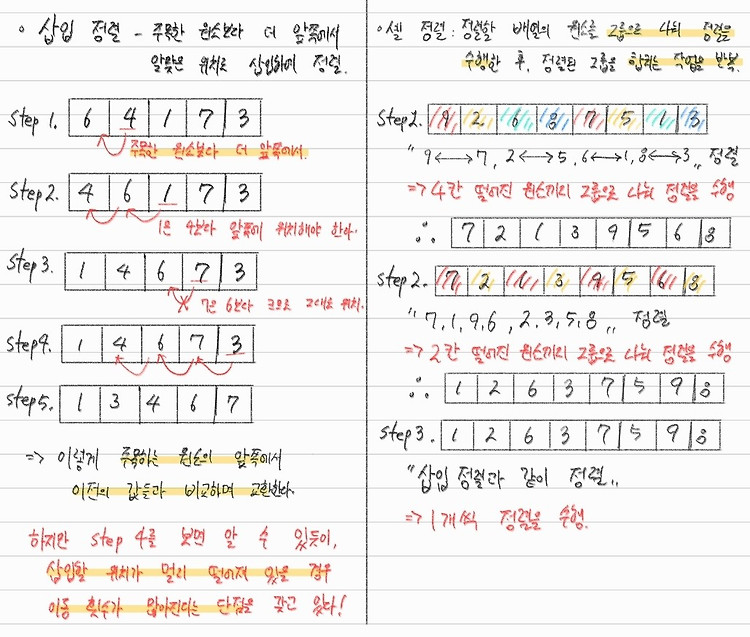 • 삽입 정렬 - 주목한 원소보다 더 앞쪽에서
알맞은 위치로 삽입하여 정렬.
Step 1. 6 4 1 7 3
주목한 원소보다 더 앞쪽에서.
Step2. 4 6 1 7 3
1은 4보다 앞쪽에 위치해야 한다.
Step3. 1 4 6 7 3
7은 6보다 크므로 그대로 위치.
Step4. 1 4 6 7 3
Step5. 1 3 4 6 7
=> 이렇게 주목하는 원소의 앞쪽에서
이전의 값들과 비교하며 교환한다.
하지만 Step 4를 보면 알 수 있듯이,
삽입할 위치가 멀리 떨어져 있을 경우
이동 횟수가 많아진다는 단점을 갖고 있다!
• 셸 정렬 : 정렬할 배열의 원소를 그룹으로 나눠 정렬을
수행한 후, 정렬된 그룹을 합치는 작업을 반복.
Step1. 9 2 6 8 7 5 1 3
" 9↔7, 2↔5, 6↔1, 8↔3 ,, 정렬
=> 4칸 떨어진 원소끼리 그룹으로 나눠 정렬을 수행
∴ 7 2 1 3 9 5 6 8
Step2. 7 2 1 3 9 5 6 8
" 7, 1, 9, 6 , 2, 3, 5, 8 ,, 정렬
=> 2칸 떨어진 원소끼리 그룹으로 나눠 정렬을 수행
∴ 1 2 6 3 7 5 9 8
Step3. 1 2 6 3 7 5 9 8
" 삽입 정렬과 같이 정렬 ,,
=> 1개씩 정렬을 수행.